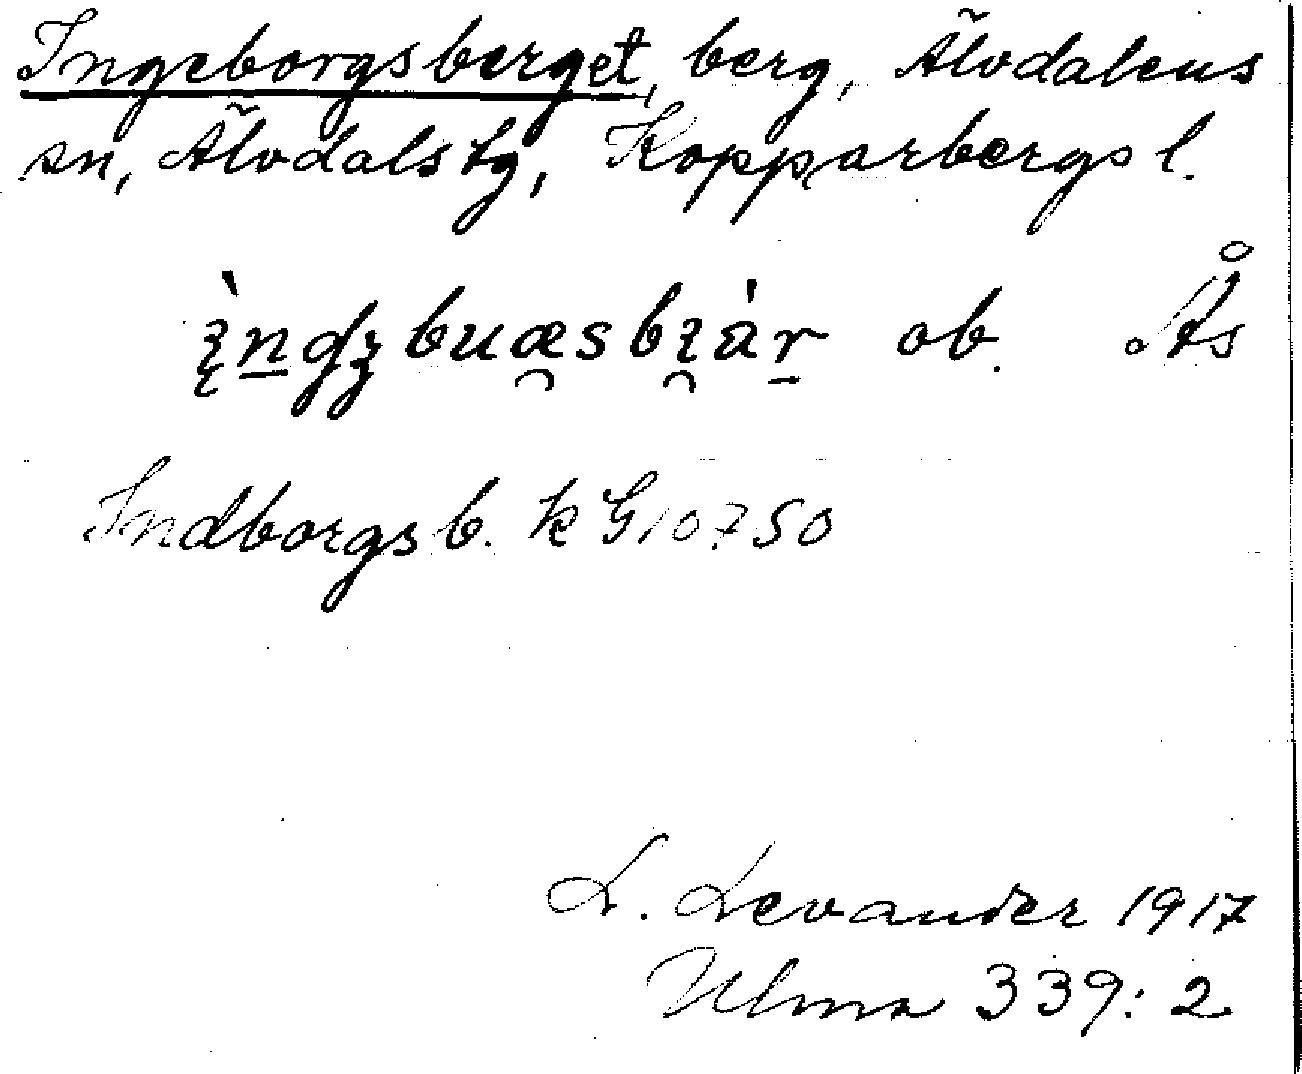 Ingeborgsberget, berg, Älvdalens
sn, Älvdals tg, Kopparbergs l.
ob. Ås
Indborgsb. k G 10750
L. Levander 1917
Ulma 339: 2